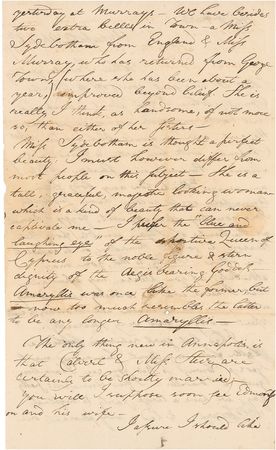 yesterday at Murrays – We have besides
two extra belles in town – a Miss
Sydebotham from England & Miss
Murray, who has returned from George
Town, (where she has been about a
year) improved beyond belief. She is
really I think, as handsome, if not more
so, than either of her sisters –
Miss Sydebotham is thought a perfect
beauty. I must however differ from
most people on this subject – She is a
tall, graceful, majestic looking woman
which is a kind of beauty that can never
captivate me – I prefer the "blue and
laughing eye" of the sportive Queen of
Cyprus to the noble figure & stern
dignity of the Aegis bearing Goddess
Amaryllis was once like the former, but
now too much resembles the latter
to be any longer Amaryllis –
The only thing new in Annapolis, is
that Calvert & Miss are
certainly to be shortly married
You will I suppose soon see
on and his wife –
I assure I should like